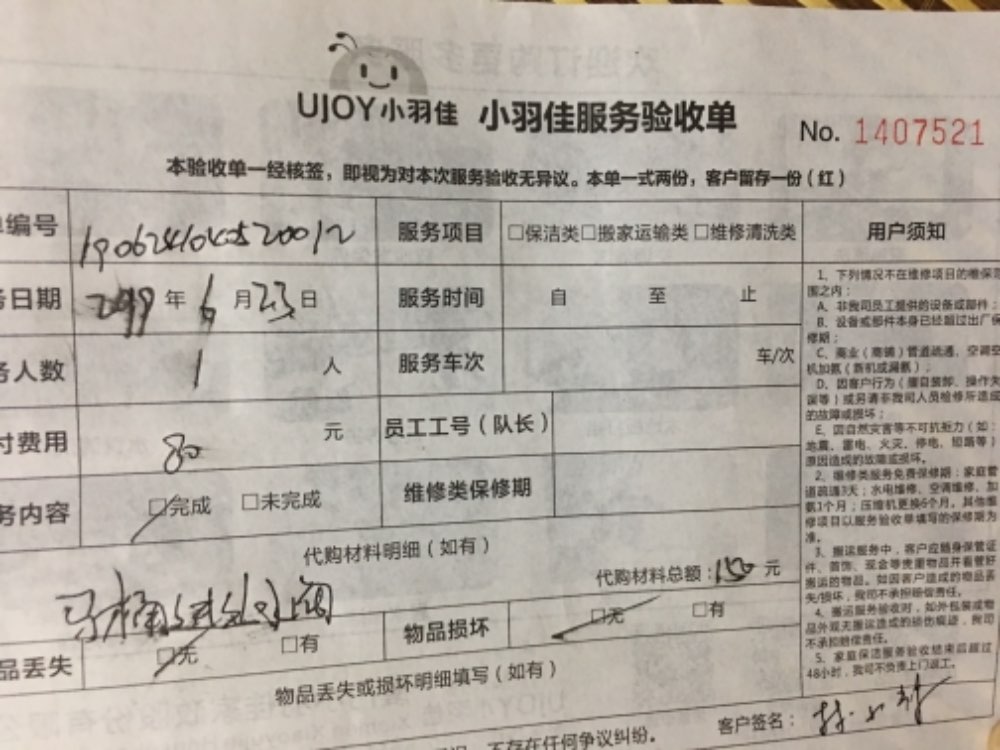 UJOY小羽佳 小羽佳服务验收单
No. 1407521
本验收单一经核签，即视为对本次服务验收无异议。本单一式两份，客户留存一份（红）
单编号 服务项目 □保洁类□搬家运输类□维修清洗类 用户须知
务日期 年 6 月 23 日 服务时间 自 至 止
务人数 1 人 服务车次 车/次
付费用 80 元 员工工号（队长）
务内容 □完成 □未完成 维修类保修期
代购材料明细（如有）
代购材料总额：150 元
马桶进水 阀
品丢失 □无 □有 物品损坏 □无 □有
物品丢失或损坏明细填写（如有）
不存在任何争议纠纷。
客户签名：
1、下列情况不在维修项目的维保范
围之内：
A、非我司员工提供的设备或部件；
B、设备或部件本身已经超过出厂保
修期；
C、商业（商铺）管道疏通、空调空
机加氨（新机或漏氨）；
D、因客户行为（擅自装卸、操作失
误等）或另请非我司人员检修所造成
的故障或损坏；
E、因自然灾害等不可抗拒力（如：
地震、雷电、火灾、停电、短路等）
原因造成的故障或损坏。
2、维修类服务免费保修期：家庭管
道疏通3天；水电维修、空调维修、加
氨1个月；压缩机更换6个月，其他维
修项目以服务验收单填写的保修期为
准。
3、搬运服务中，客户应随身保管证
件、首饰、现金等贵重物品并看管好
搬运的物品。如因客户造成的物品丢
失/损坏，我司不承担赔偿责任。
4、搬运服务验收时，如外包装或物
品外观无搬运造成的损伤痕迹，我司
不承担赔偿责任。
5、家庭保洁服务验收结束后超过
48小时，我司不负责上门返工。